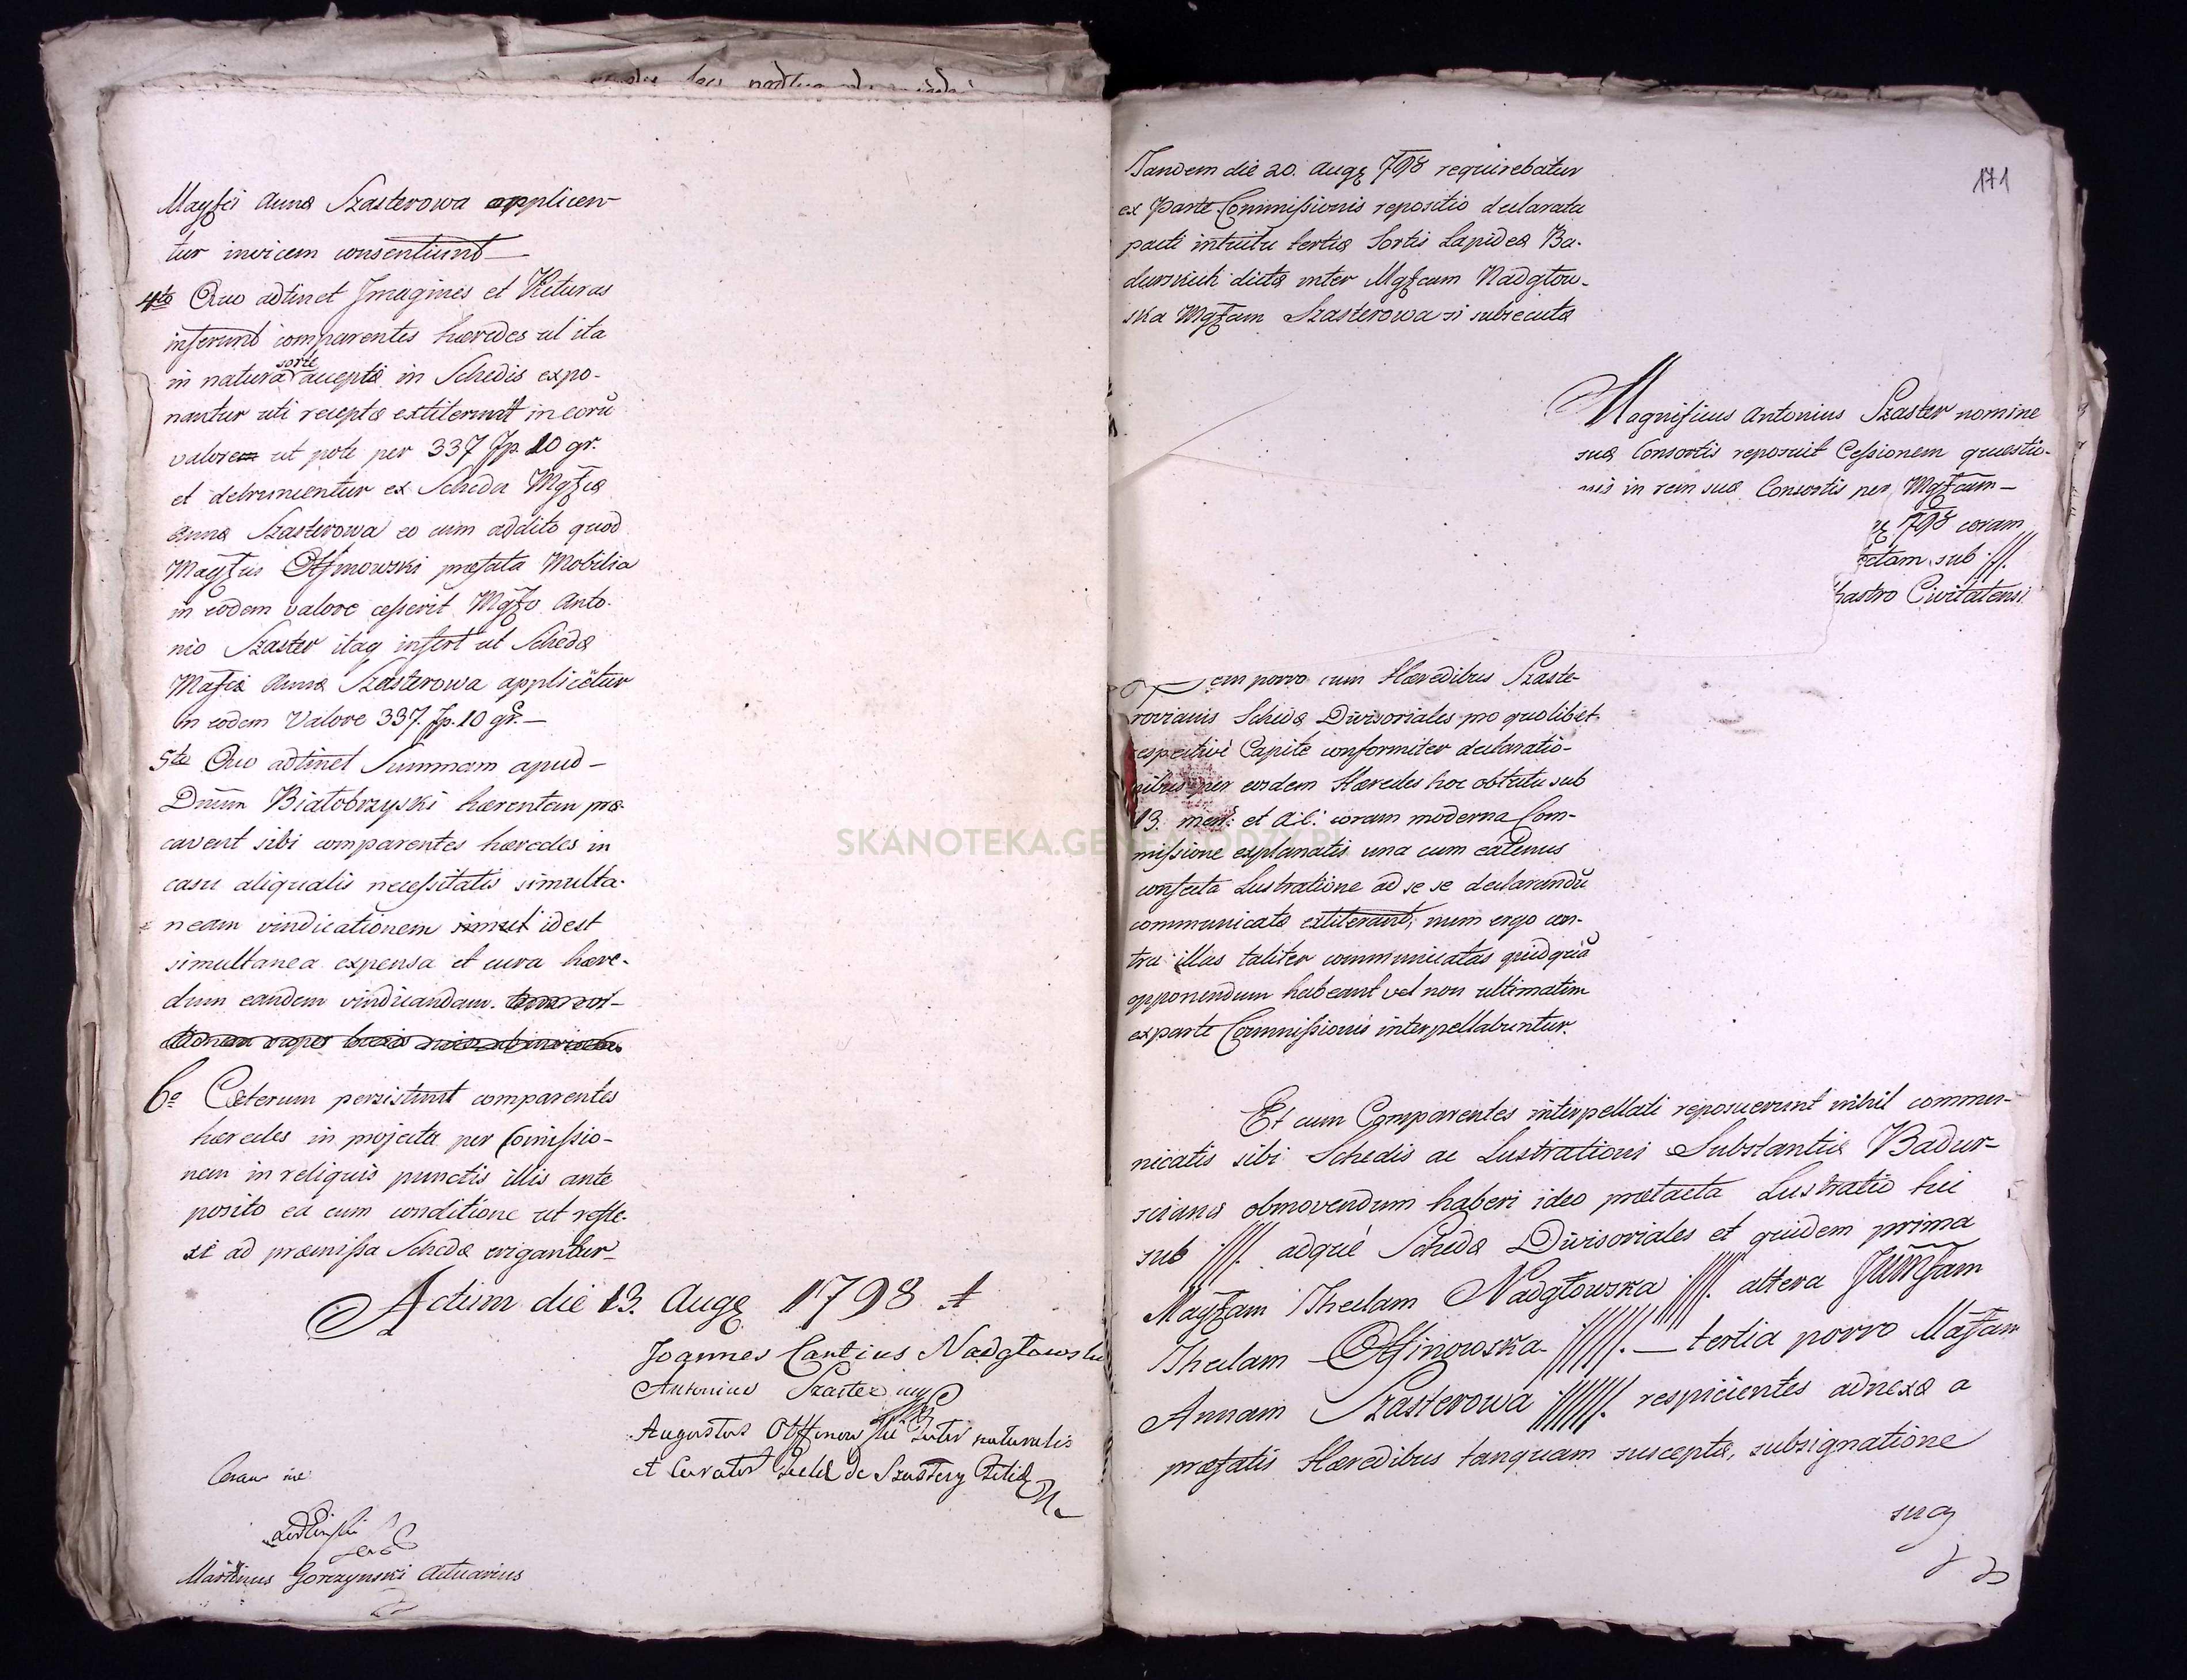 Magfici Annæ Szasterowa applicen
tur invicem consentiunt
4to Quo adtinet Imagines et Vituras
inferunt comparentes hæredes ut ita
in natura sorte acceptæ in Schedis expo-
nantur uti receptæ extiterunt in eorū
valore ut pote per 337 fp. 10 gr.
et detrunentur ex Scheda Mgfcæ
Annæ Szasterowa eo cum addito quod
Magfcus Offinowski præfata Mobilia
in eodem valore cesserit Mgfo Anto-
nio Szaster itaq insert ut Schedæ
Mafcæ Annæ Szasterowa applicētur
in eodem Valore 337. fp. 10 gr. —
5to Quo adtinet Summam apud —
Dnum Białobrzyski hærentem præ
cavent sibi comparentes hæredes in
casu aliqualis necessitatis simulta-
neam vindicationem simul idest
simultanea expensa et cura hære-
dum eandem vindicandam.
6o Cæterum persistunt comparentes
hæredes in projecto per Comissio-
nem in reliquis punctis illis ante
posito ea cum conditione ut refle-
xi ad præmissa Schedæ erigantur
Actum die 13. Augę 1798
Joannes Cantius Nadgłowski
Antonius Szaster mp
Augustus Offinowski Pater naturalis
et Curator de Szastery
Coram me
Martinus Gorczynski Actuarius
171
Tandem die 20. Augę 798 requirebatur
ex Parte Commissionis repositio declarata
pacti intuitu tertiæ Sortis Lapideæ Ba-
durwich dictæ inter Mgfcam Nadgłow-
ska Mgfam Szasterowa si subsecuta
Magnificus Antonius Szaster nomine
suæ Consortis reposuit Cessionem quæstio-
nis in rem suæ Consortis per Mgfcam —
798 coram
ctam sub ·//.
Castro Civitatensi
em porro cum Hæredibus Szaste-
rovianis Schedæ Divisoriales pro quolibet
respective Capite conformiter declaratio-
nibus per eosdem Hæredes hoc obtutu sub
13. men: et A:c: coram moderna Com-
missione explanatis una cum eatenus
confecta Lustratione ad se se declarandū
communicatæ extiterant, num ergo con-
tra illas taliter communicatas quidquā
opponendum habeant vel non ultimatim
ex parte Commissionis interpellabuntur.
Et cum Comparentes interpellati reposuerunt nihil commu-
nicatis sibi Schedis ac Lustrationi Substantiæ Badur-
scianæ obmovendum haberi ideo prætacta Lustratio hic
sub ·///. adque Schedæ Divisoriales et quidem prima
Magfam Theclam Nadgłowska ·////. altera
Theclam Offinowska ·/////. — tertia porro Mafam
Annam Szasterowa ·//////. respicientes adnexæ a
præfatis Hæredibus tanquam susceptæ, subsignatione
sua